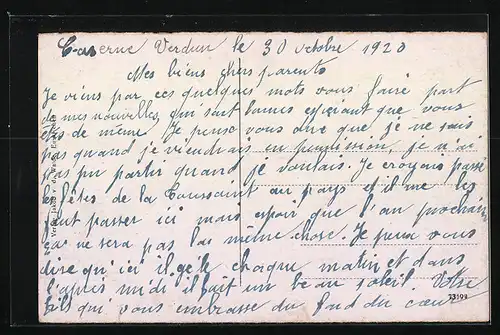 Caserne Verdun le 30 octobre 1920
Mes biens chers parents
Je viens par ces quelques mots vous faire part
de mes nouvelles, qui sont bonnes espérant que vous
êtes de même. Je peux vous dire que je ne sais
pas quand je viendrais en permission, je n'ai
pas pu partir quand je voulais. Je croyais passé
les fêtes de la Toussaint au pays et il me les
faut passer ici mais espoir que l'an prochain
ça ne sera pas la même chose. Je peux vous
dire qu'ici il gèle chaque matin et dans
l'après midi il fait un beau soleil. Votre
fils qui vous embrasse du fond du cœur
23199